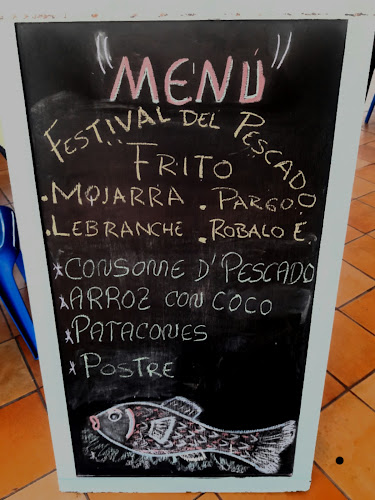 "MENÚ"
FESTIVAL DEL PESCADO
FRITO
.MOJARRA .PARGO O
.LEBRANCHE .ROBALO E.
*CONSOME D' PESCADO
*ARROZ CON COCO
*PATACONES
*POSTRE